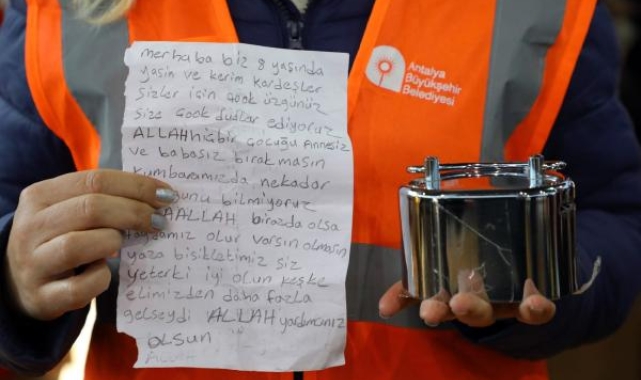 merhaba biz 8 yaşında
yasin ve kerim kardeşler
Sizler için çook üzgünüz
size çook dualar ediyoruz
ALLAH hiçbir çocuğu Annesiz
ve babasız bırakmasın
kumbaramızda nekadar
bilmiyoruz
ALLAH birazda olsa
faydamız olur varsın olmasın
yaza bisikletimiz siz
yeterki iyi olun keşke
elimizden daha fazla
gelseydi ALLAH yardımcınız
olsun
Antalya
Büyükşehir
Belediyesi